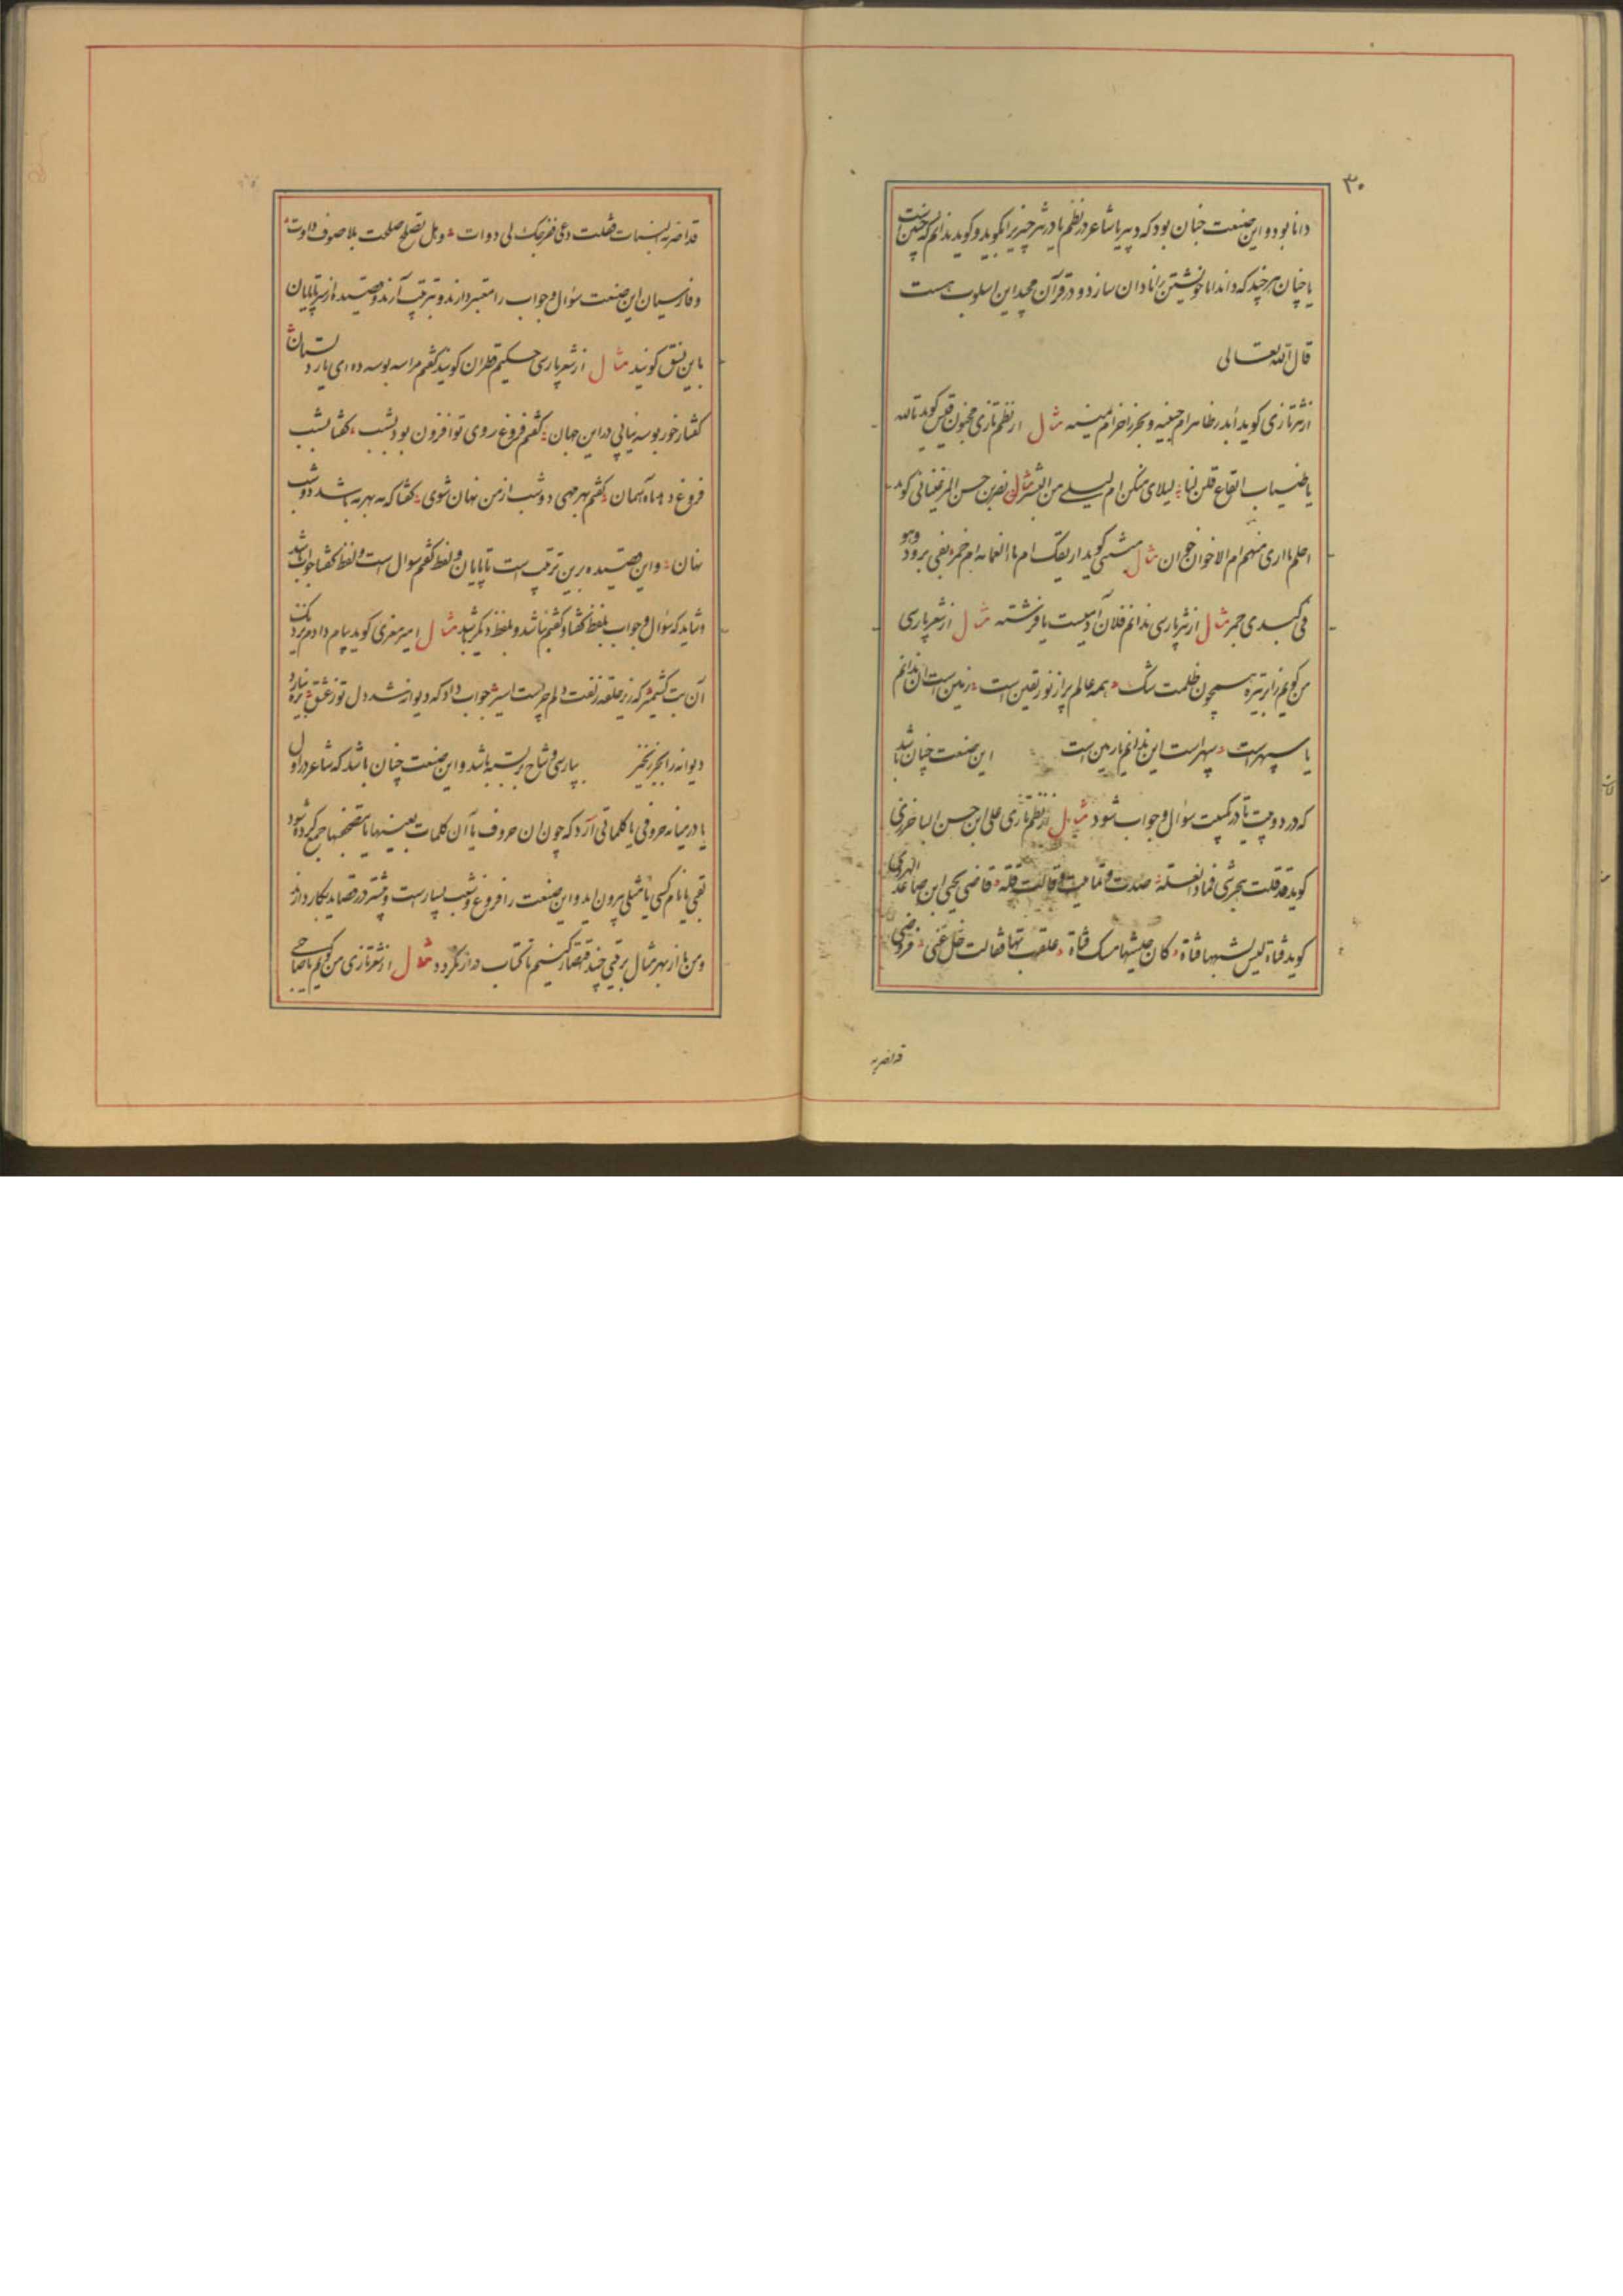 ۳۰
دانا بود و این صنعت چنان بود که دبیر یا شاعر در نظم یا در نثر چیزی را بگوید و گوید ندانم که چنین است
یا چنان هر چند که داند اما خویشتن را نادان سازد و در قرآن مجید این اسلوب هست
قال الله تعالی
از نثر تازی گوید ابدر ظاهر ام جبینه و بحر زاخر ام یمینه مثال از نظم تازی مجنون قیس گوید تالله
یا ظبیات القاع قلن لنا لیلای منکن ام لیلی من البشر مثال نصر بن حسن المرغینانی گوید
اعلم اری منهم ام الاخوان خوان مثال متنبی گوید اریقک ام ماء الغمامه ام خمر بفی برود وهو
فی کبدی جمر مثال از نثر پارسی ندانم فلان آدمیست یا فرشته مثال از شعر پارسی
من گویم ز ابر تیره همچون ظلمت شک همه عالم پر از نور یقین است زمین است آن ندانم
یا سپهر است سپهر است این ندانم یا زمین است این صنعت چنان باشد
که در دو بیت یا در یک بیت سؤال و جواب شود مثال از نظم تازی علی ابن حسن الباخرزی
گوید قد قلت هجرتنی فما ذا العله صدت و تمایلت و قالت قله قاضی یحیی ابن صاعد الهروی
گوید فتاة لیس یشبهها فتاة کان حبیبها مسک فتاة علقت بها فقالت خل عنی
قد اضر به
قد اضر به السبات فقلت دعی فزوجک لی دوات وهل تصلح صلحت بلا صوف دوات
و فارسیان این صنعت سؤال و جواب را معتبر دارند و بترتیب آرند و قصیده از سر تا پایان
باین نسق گویند مثال از شعر پارسی حکیم قطران گوید گفتم مرا سه بوسه ده ای یار دلستان
گفتا ز حور بوسه نیابی در این جهان گفتم فروغ روی تو افزون بود بشب گفتا بشب
فروغ دهد ماه آسمان گفتم بهر مهی دو شب از من نهان شوی گفتا که مه بهر مه باشد دو شب
نهان و این قصیده برین ترتیب است تا پایان و لفظ گفتم سوال است و لفظ گفتا جواب باشد
و شاید که سؤال و جواب بلفظ گفتا و گفتم نباشد و بلفظ دیگر باشد مثال امیر معزی گوید پیام دادم نزدیک
آن بت کشمیر که زیر حلقه زلفت دلم چراست اسیر جواب داد که دیوانه شد دل تو ز عشق بره نیارد
دیوانه را بجز زنجیر بپارسی وشاح بر بسته باشد و این صنعت چنان باشد که شاعر در اول
یا در میانه حروفی یا کلماتی آرد که چون آن حروف یا آن کلمات بعینها یا بتصحیفها جمع کرده شود
بیتی یا نام کسی یا مثلی بیرون اید و این صنعت را فروغ و شعب بسیارست و بیشتر در قصاید بکار دارند
و من از بهر مثال بر بیتی چند اقتصار کنیم تا کتاب دراز نگردد مثال از شعر تازی من گویم یا صاحبی